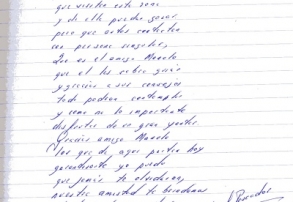 que visiten esta zona
y de ella puedan gozar
pero que antes contacten
con persona singular,
Que es el amigo Manolo
que él les sabrá guiar
y gracias a sus consejos
todo podrán contemplar
y como es lo importante
disfrutar de su gran yantar
Gracias amigo Manolo
los que de aquí parten hoy
garantizarte yo puedo
que jamás te olvidarán,
nuestra amistad te brindamos